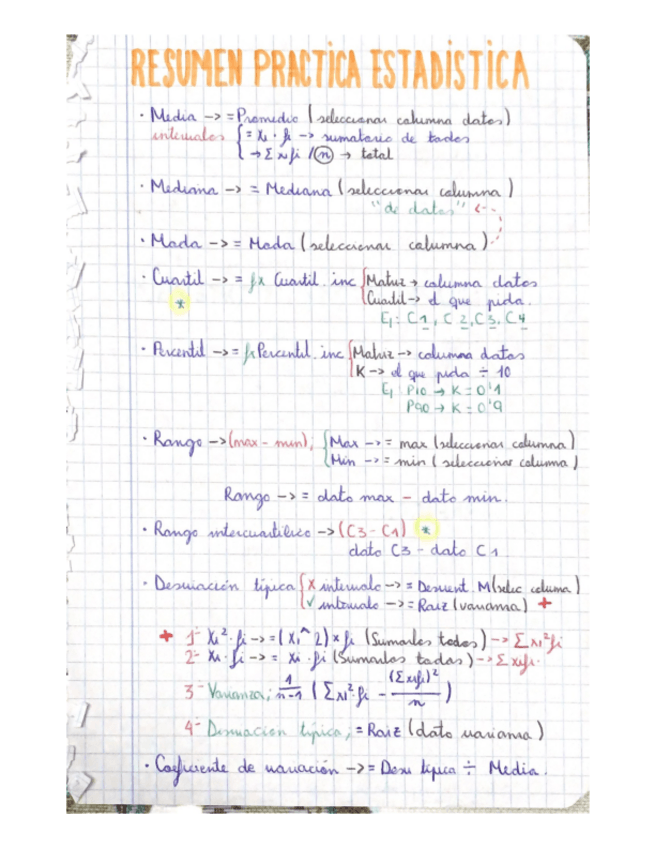 RESUMEN PRACTICA ESTADÍSTICA
· Media -> = Promedio (seleccionar columna datos)
intervalos { = xi · fi -> sumatorio de todos
-> Σ xifi / n -> total
· Mediana -> = Mediana (seleccionar columna)
"de datos" <--
· Moda -> = Moda (seleccionar columna)
· Cuartil -> = fx Cuartil.inc { Matriz -> columna datos
* Cuartil -> el que pida.
Ej: C1, C2, C3, C4
· Percentil -> = fx Percentil.inc { Matriz -> columna datos
K -> el que pida ÷ 10
Ej: P10 -> K = 0'1
P90 -> K = 0'9
· Rango -> (max - min); { Max -> = max (seleccionar columna)
Min -> = min (seleccionar columna)
Rango -> = dato max - dato min.
· Rango intercuartílico -> (C3 - C1) *
dato C3 - dato C1
· Desviación típica { x intervalo -> = Desvest.M(selec columna)
✓ intervalo -> = Raiz (varianza) +
+ 1º xi²·fi -> = (xi^2) × fi (Sumarlos todos) -> Σ xi²fi
2º xi·fi -> = xi·fi (Sumarlos todos) -> Σ xifi.
3º Varianza; 1/n-1 (Σ xi²·fi - (Σxifi)²/n)
4º Desviacion típica; = Raiz (dato varianza)
· Coeficiente de variación -> = Desv típica ÷ Media.